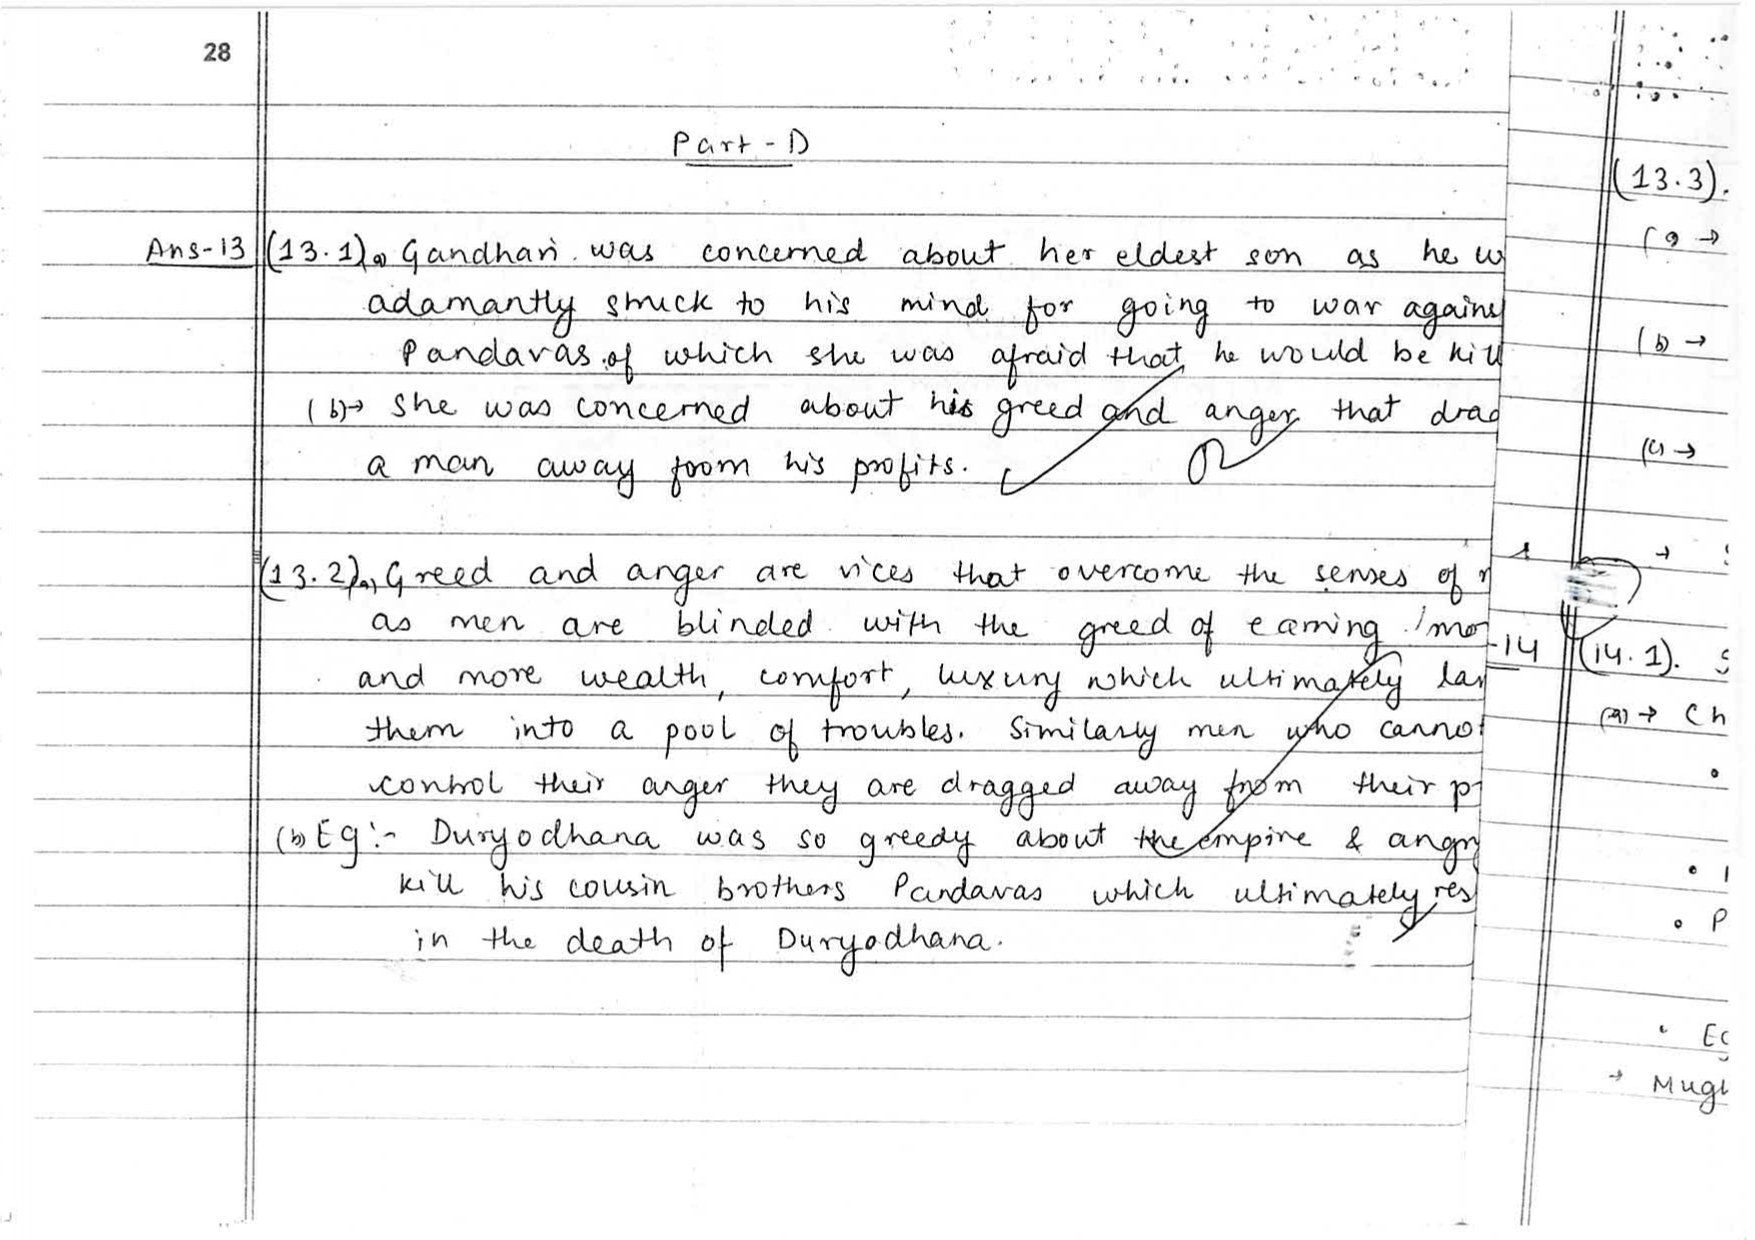 28
Part - D
Ans-13 (13.1) a) Gandhari was concerned about her eldest son as he w
adamantly struck to his mind for going to war agains
Pandavas of which she was afraid that he would be kill
(b)→ she was concerned about his greed and anger that drag
a man away from his profits.
(13.2) a) Greed and anger are vices that overcome the senses of
as men are blinded with the greed of earning mor
and more wealth, comfort, luxury which ultimately lan
them into a pool of troubles. Similarly men who cannot
control their anger they are dragged away from their p
(b) Eg :- Duryodhana was so greedy about the empire & angry
kill his cousin brothers Pandavas which ultimately res
in the death of Duryodhana.
(13.3).
(a →
(b) →
(c) →
→
-14 (14.1). S
(a) → Ch
•
•
• P
• Ec
→ Mugh